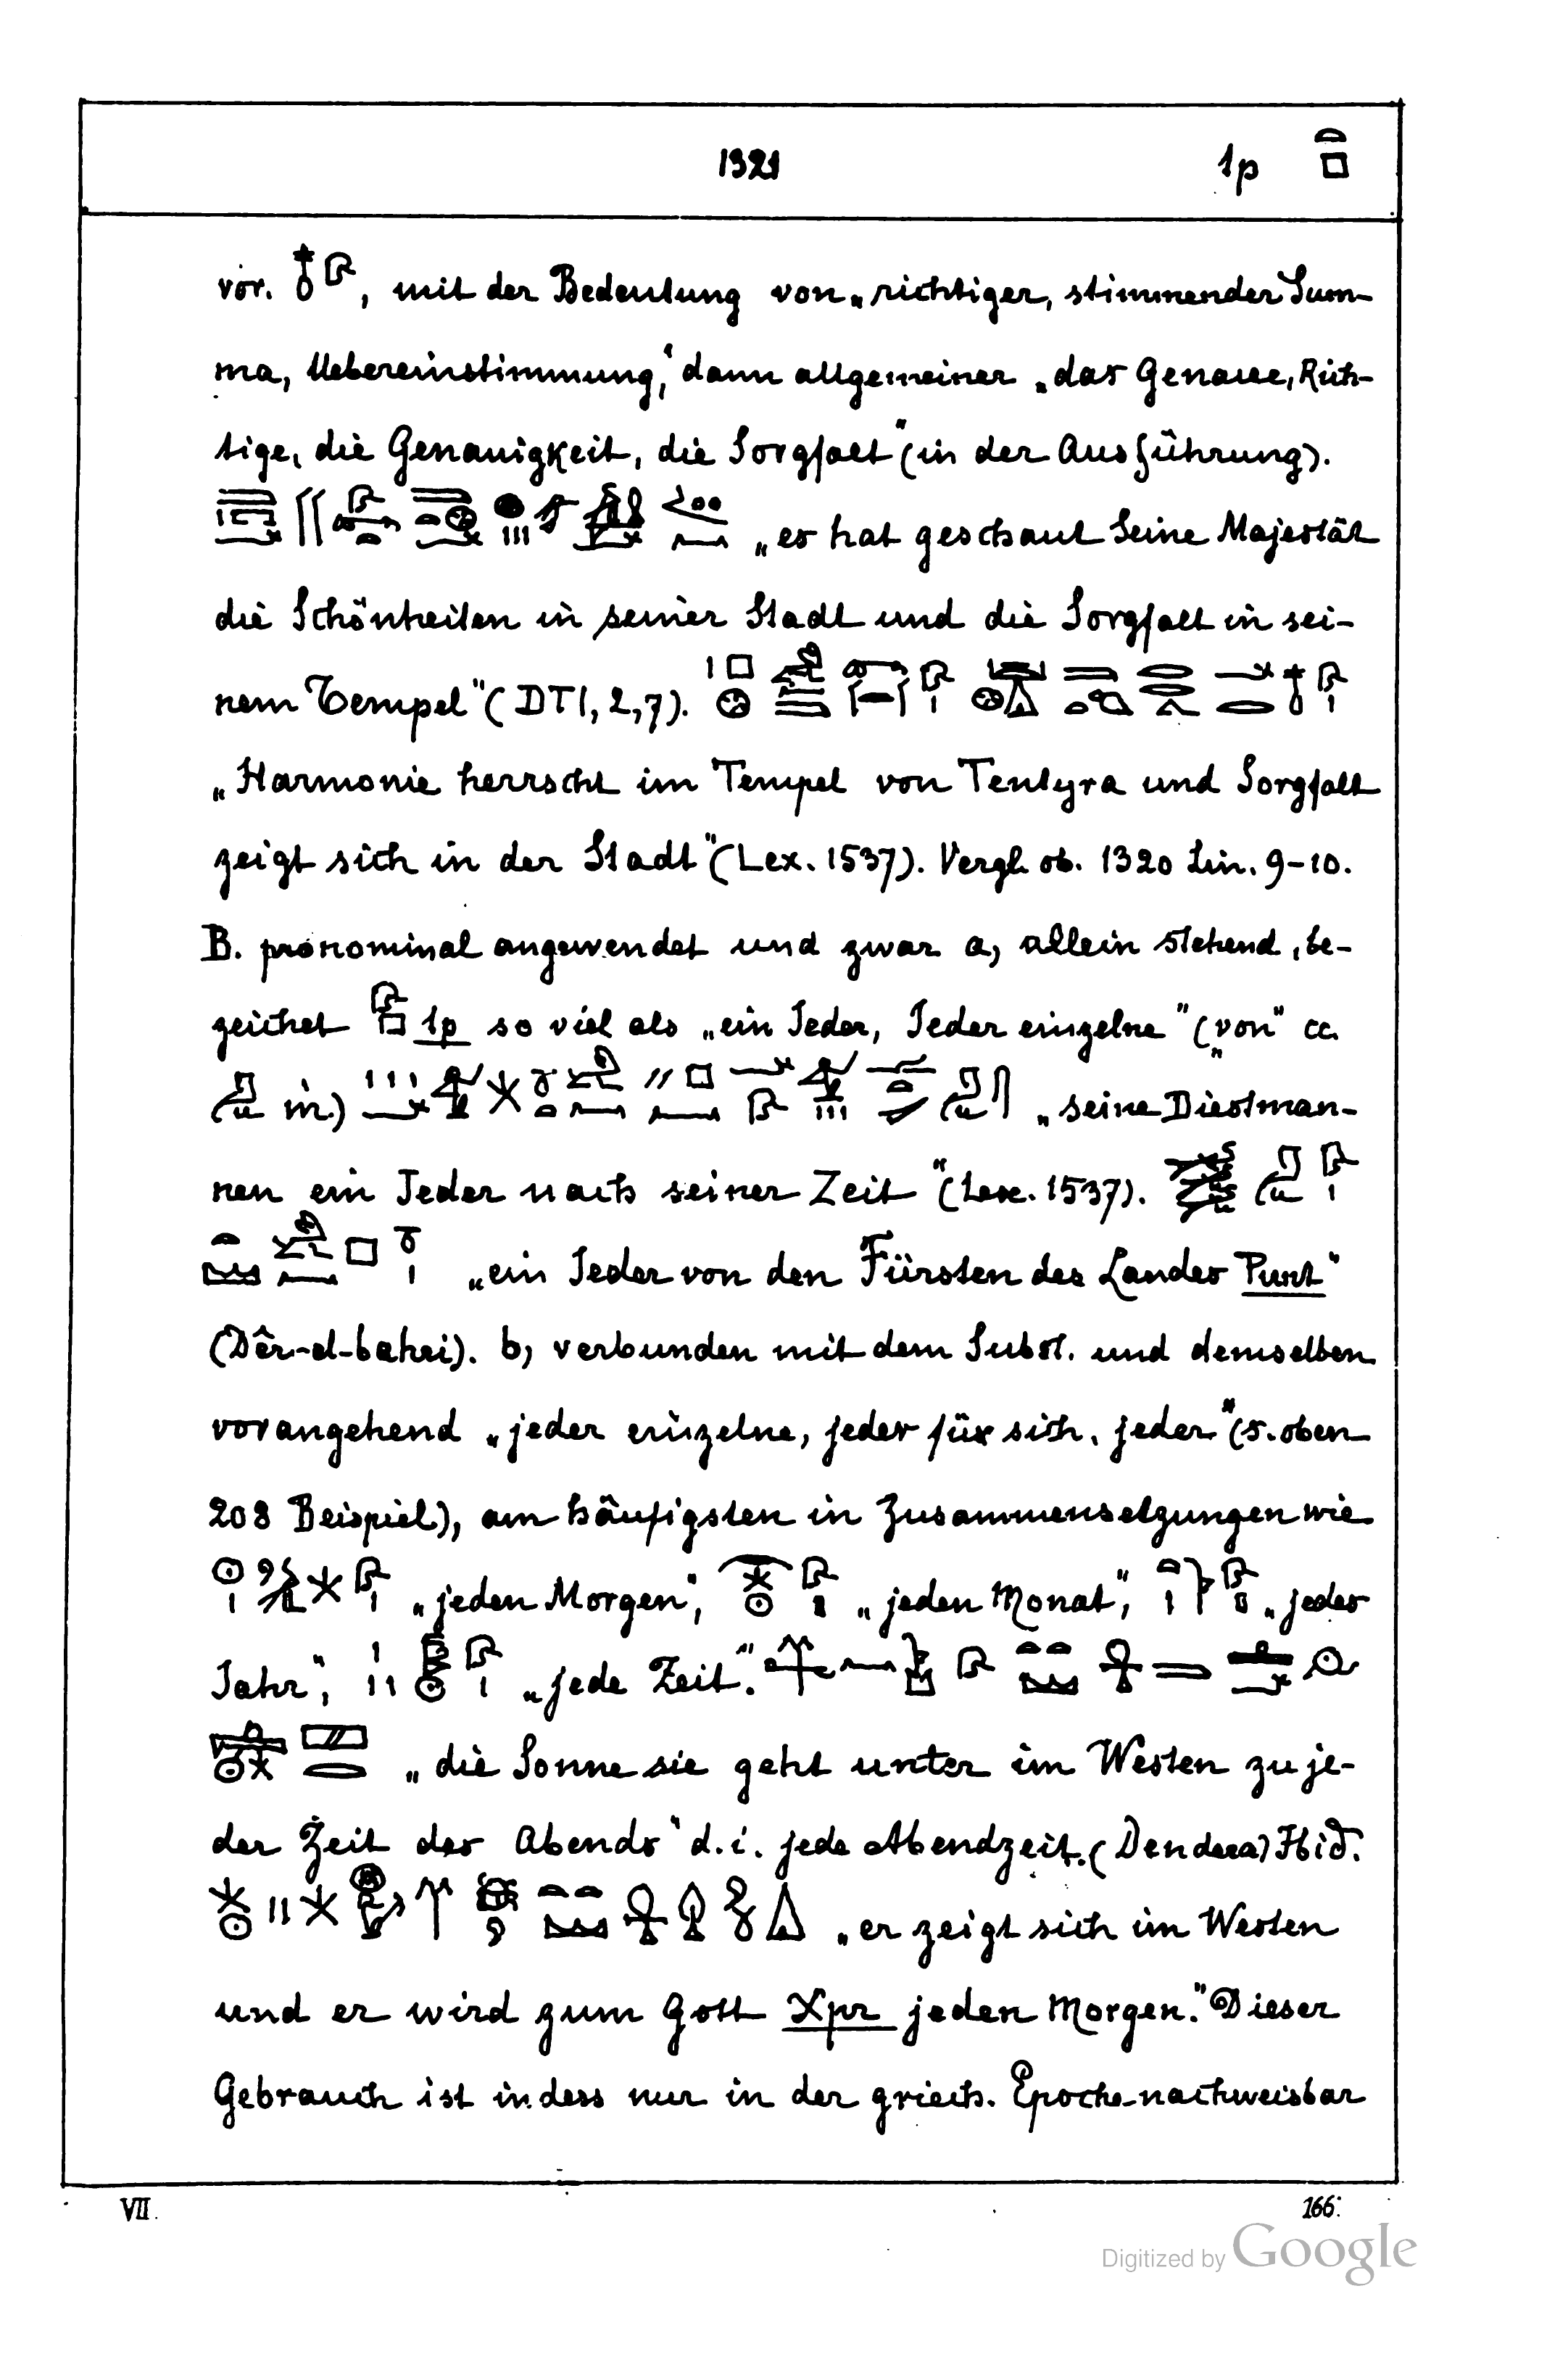 1321 1p
vor. , mit der Bedeutung von „richtiger, stimmender Sum-
ma, Uebereinstimmung,“ dann allgemeiner „das Genaue, Rich-
tige, die Genauigkeit, die Sorgfalt“ (in der Ausführung).
„es hat geschaut Seine Majestät
die Schönheiten in seiner Stadt und die Sorgfalt in sei-
nem Tempel“ (DTI, 2, 7).
„Harmonie herrscht im Tempel von Tentyra und Sorgfalt
zeigt sich in der Stadt“ (Lex. 1537). Vergl. ob. 1320 Lin. 9-10.
B. pronominal angewendet und zwar a, allein stehend, be-
zeichet 1p so viel als „ein Jeder, Jeder einzelne“ („von“ cc.
m.) „seine Diestman-
nen ein Jeder nach seiner Zeit“ (Lex. 1537).
„ein Jeder von den Fürsten des Landes Punt“
(Dêr-el-baheri). b, verbunden mit dem Subst. und demselben
vorangehend „jeder einzelne, jeder für sich, jeder“ (s. oben
208 Beispiel), am häufigsten in Zusammensetzungen wie
„jeden Morgen“, „jeden Monat“, „jedes
Jahr“, „jede Zeit“.
„die Sonne sie geht unter im Westen zu je-
der Zeit des Abends“ d.i. jede Abendzeit. (Dendera) Ibid.
„er zeigt sich im Westen
und er wird zum Gott Xpr jeden Morgen.“ Dieser
Gebrauch ist indess nur in der griech. Epoche nachweisbar
VII. 166.
Digitized by Google